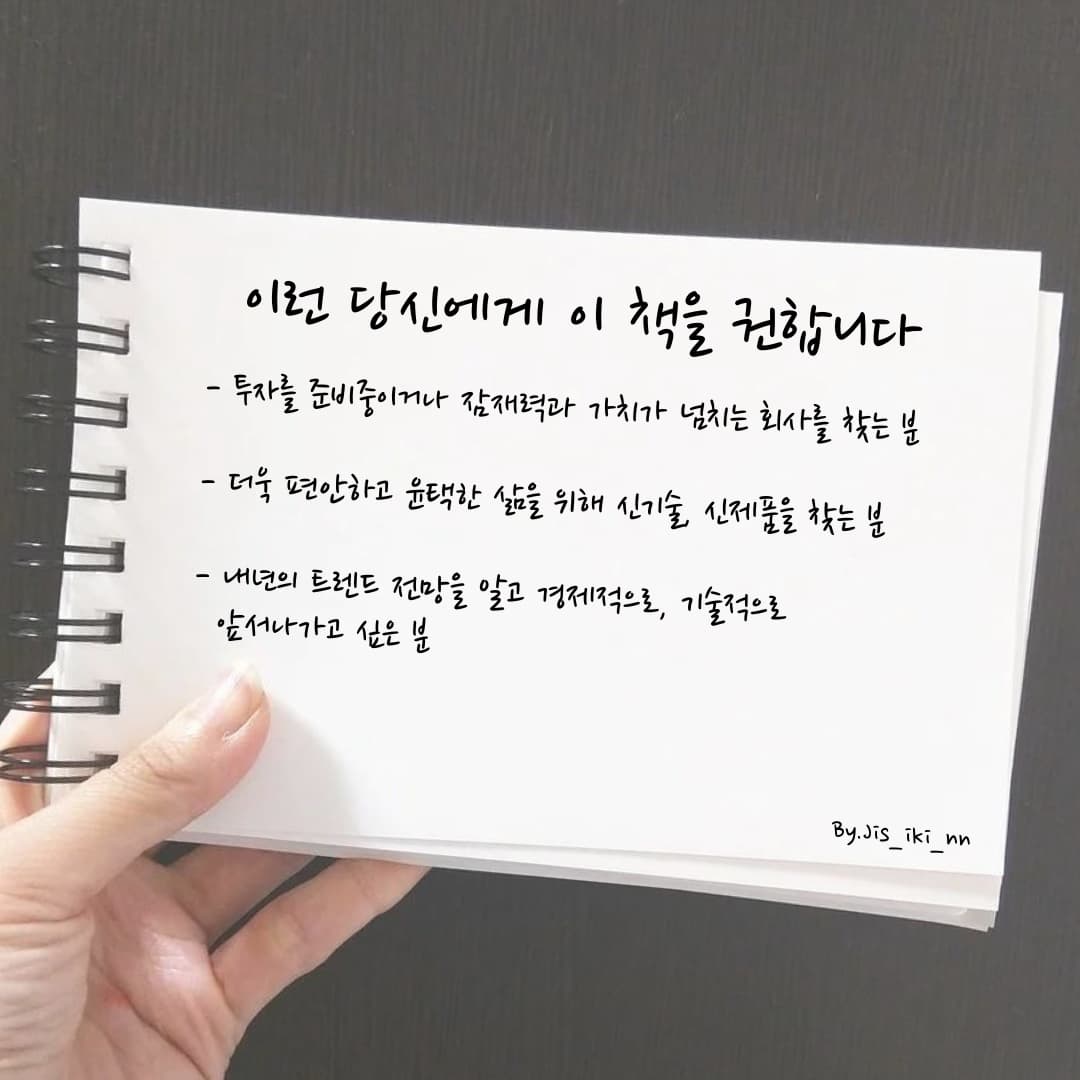 이런 당신에게 이 책을 권합니다
- 투자를 준비중이거나 잠재력과 가치가 넘치는 회사를 찾는 분
- 더욱 편안하고 윤택한 삶을 위해 신기술, 신제품을 찾는 분
- 내년의 트렌드 전망을 알고 경제적으로, 기술적으로
앞서나가고 싶은 분
By.Jis_iki_nn